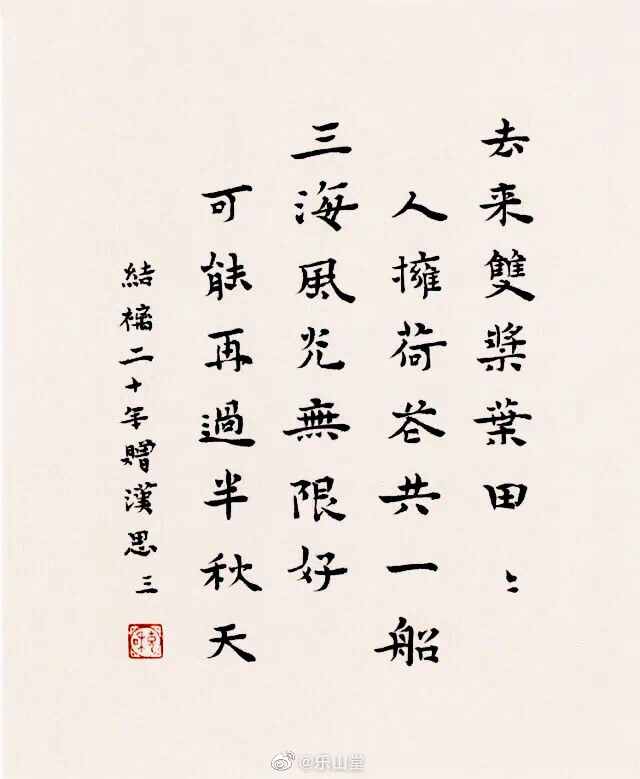 去来雙槳葉田〻
人擁荷花共一船
三海風光無限好
可能再過半秋天
結褵二十年贈漢思 三
@乐山堂